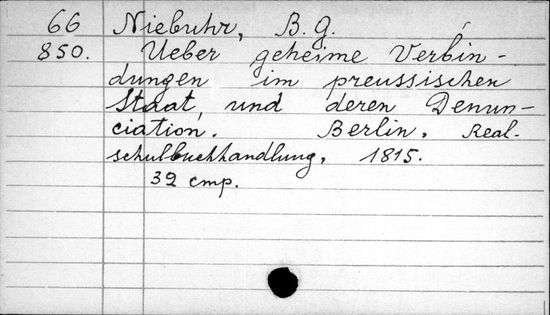 66 Niebuhr, B. G.
850. Ueber geheime Verbin-
dungen im preussischen
Staat, und deren Denun-
ciation. Berlin, Real-
schulbuchhandlung, 1815.
32 стр.